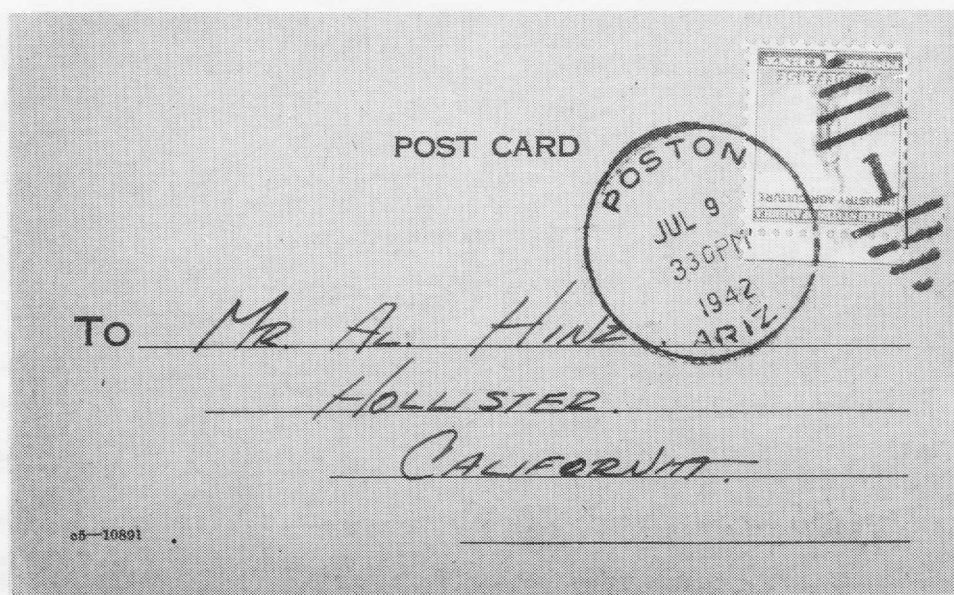 POST CARD
POSTON
JUL 9
330PM
1942
ARIZ.
1
INDUSTRY AGRICULTURE
To Mr. Al. Hinz.
Hollister.
California.
c5—10891